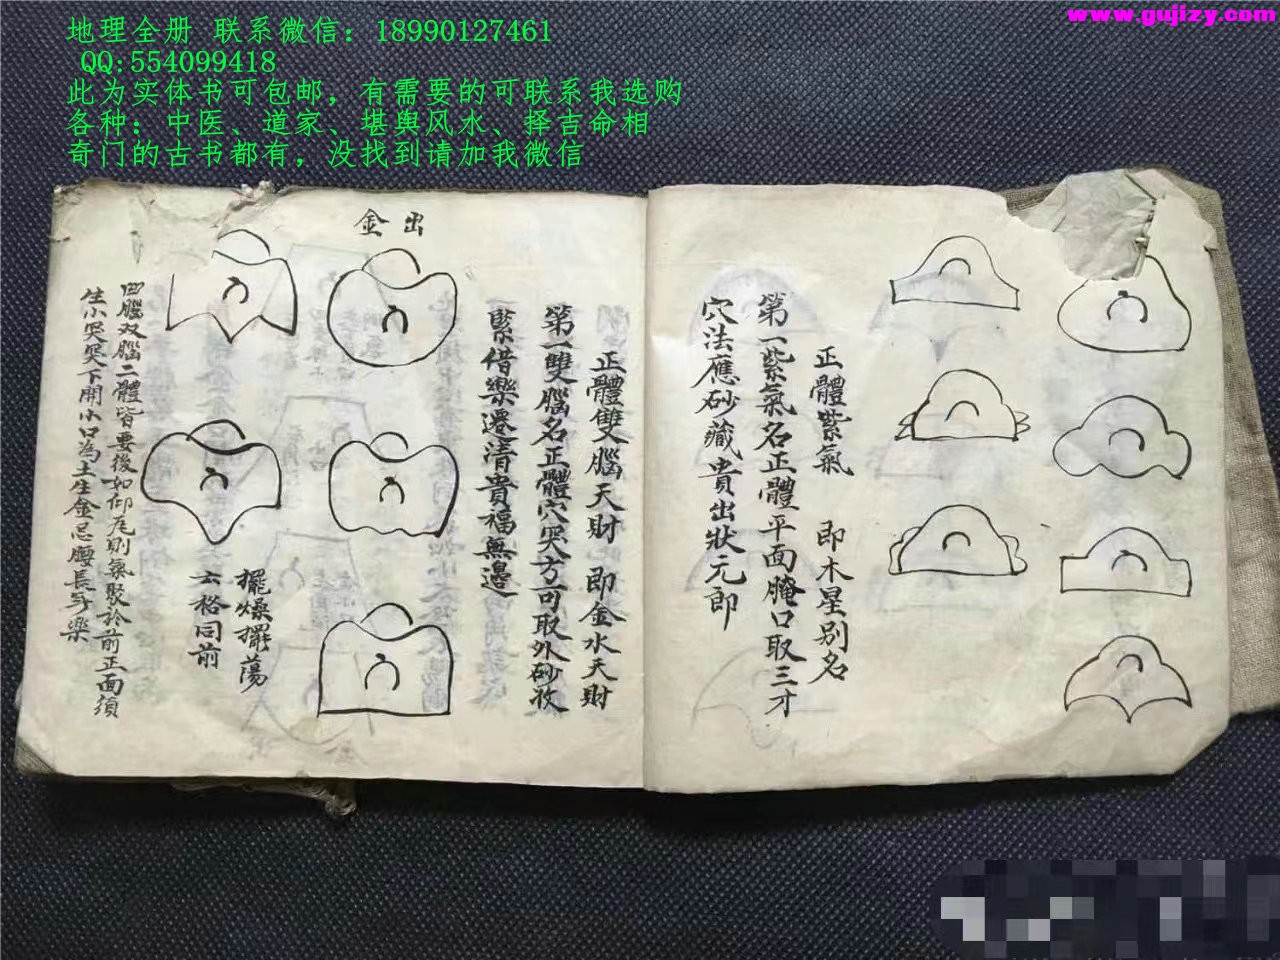 地理全册 联系微信：18990127461
QQ:554099418
此为实体书可包邮，有需要的可联系我选购
各种：中医、道家、堪舆风水、择吉命相
奇门的古书都有，没找到请加我微信
www.gujizy.com
正體紫氣 即木星別名
第一紫氣名正體平面腌口取三才
穴法應砂藏貴出狀元郎
出金
正體雙腦天財 即金水天財
第一雙腦名正體穴哭方可取外砂收
緊借樂遷清貴福無邊
擺燥擺蕩
六格同前
四腦双腦二體皆要後如仰瓦則氣聚於前正面須
生小哭哭下開小口為土生金忌腰長于樂